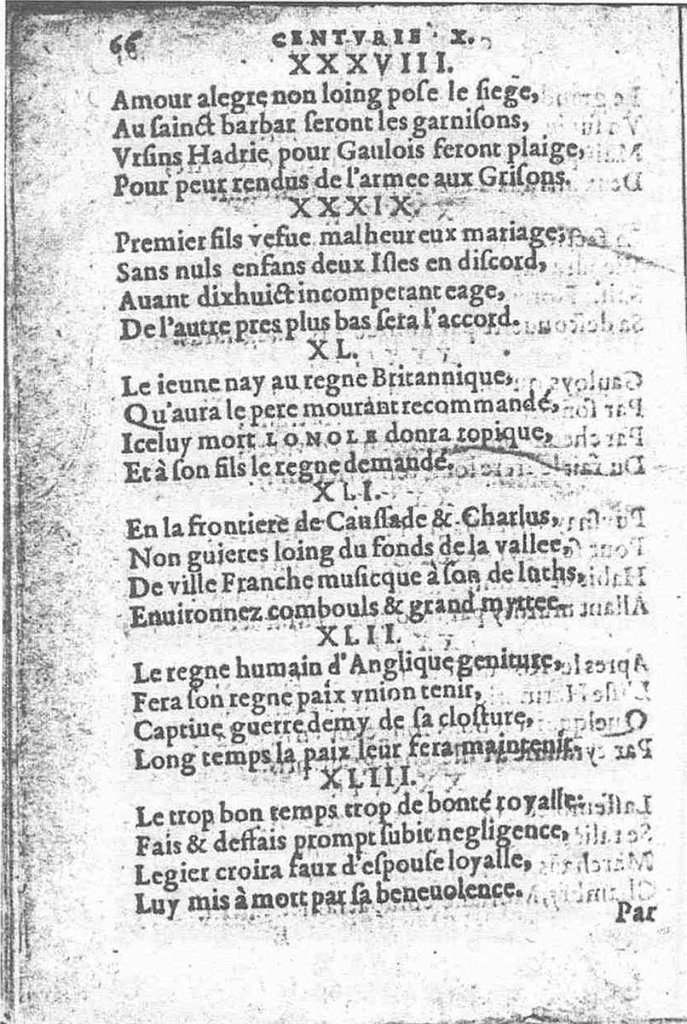 66 CENTVRIE X.
XXXVIII.
Amour alegre non loing pose le siege,
Au sainct barbar seront les garnisons,
Vrsins Hadrie pour Gaulois feront plaige,
Pour peur rendus de l'armee aux Grisons.
XXXIX.
Premier fils vefue malheureux mariage,
Sans nuls enfans deux Isles en discord,
Auant dixhuict incompetant eage,
De l'autre pres plus bas sera l'accord.
XL.
Le ieune nay au regne Britannique,
Qu'aura le pere mourant recommandé,
Iceluy mort LONOLE donra topique,
Et à son fils le regne demandé.
XLI.
En la frontiere de Caussade & Charlus,
Non guieres loing du fonds de la vallee,
De ville Franche musicque à son de luths,
Enuironnez combouls & grand myttee.
XLII.
Le regne humain d'Anglique geniture,
Fera son regne paix vnion tenir,
Captiue guerre demy de sa closture,
Long temps la paix leur fera maintenir.
XLIII.
Le trop bon temps trop de bonté royalle:
Fais & deffais prompt subit negligence,
Legier croira faux d'espouse loyalle,
Luy mis à mort par sa beneuolence.
Par